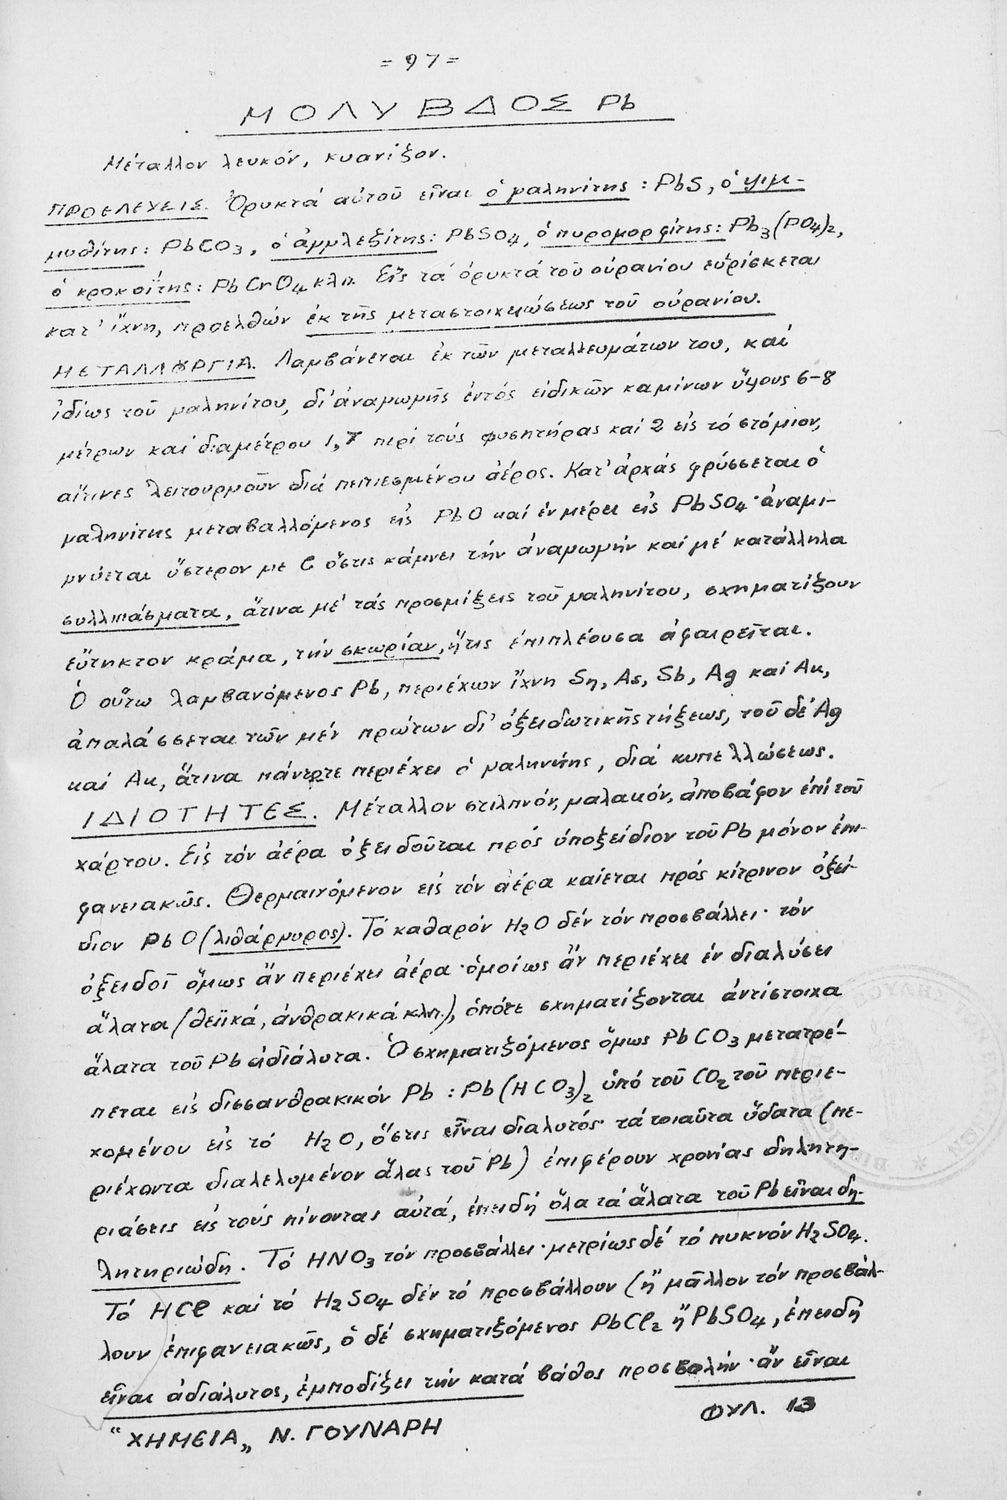 = 97 =
ΜΟΛΥΒΔΟΣ Pb
Μέταλλον λευκόν, κυανίζον.
ΠΡΟΕΛΕΥΣΙΣ. Ὀρυκτά αὐτοῦ εἶναι ὁ γαληνίτης : PbS, ὁ ψιμ-
μυθίτης : PbCO3, ὁ ἀγγλεζίτης : PbSO4, ὁ πυρομορφίτης : Pb3(PO4)2,
ὁ κροκοΐτης : PbCrO4 κλπ. Εἰς τά ὀρυκτά τοῦ οὐρανίου εὑρίσκεται
κατ' ἴχνη, προελθών ἐκ τῆς μεταστοιχειώσεως τοῦ οὐρανίου.
ΜΕΤΑΛΛΟΥΡΓΙΑ. Λαμβάνεται ἐκ τῶν μεταλλευμάτων του, καί
ἰδίως τοῦ γαληνίτου, δι' ἀναγωγῆς ἐντός εἰδικῶν καμίνων ὕψους 6-8
μέτρων καί διαμέτρου 1,7 περί τούς φυσητήρας καί 2 εἰς τό στόμιον,
αἵτινες λειτουργοῦν διά πεπιεσμένου ἀέρος. Κατ' ἀρχάς φρύσσεται ὁ
γαληνίτης μεταβαλλόμενος εἰς PbO καί ἐν μέρει εἰς PbSO4 · ἀναμι-
γνύεται ὕστερον με C ὅστις κάμνει τήν ἀναγωγήν καί μέ κατάλληλα
συλλιπάσματα, ἅτινα μέ τάς προσμίξεις τοῦ γαληνίτου, σχηματίζουν
εὔτηκτον κράμα, τήν σκωρίαν, ἥτις ἐπιπλέουσα ἀφαιρεῖται.
Ὁ οὕτω λαμβανόμενος Pb, περιέχων ἴχνη Sn, As, Sb, Ag καί Au,
ἀπαλάσσεται τῶν μέν πρώτων δι' ὀξειδωτικῆς τήξεως, τοῦ δέ Ag
καί Au, ἅτινα πάντοτε περιέχει ὁ γαληνίτης, διά κυπελλώσεως.
ΙΔΙΟΤΗΤΕΣ. Μέταλλον στιλπνόν, μαλακόν, ἀποβάφον ἐπί τοῦ
χάρτου. Εἰς τόν ἀέρα ὀξειδοῦται πρός ὑποξείδιον τοῦ Pb μόνον ἐπι-
φανειακῶς. Θερμαινόμενον εἰς τόν ἀέρα καίεται πρός κίτρινον ὀξεί-
διον PbO (λιθάργυρος). Τό καθαρόν H2O δέν τόν προσβάλλει · τόν
ὀξειδοῖ ὅμως ἄν περιέχει ἀέρα · ὁμοίως ἄν περιέχει ἐν διαλύσει
ἅλατα (θειϊκά, ἀνθρακικά κλπ.), ὁπότε σχηματίζονται ἀντίστοιχα
ἅλατα τοῦ Pb ἀδιάλυτα. Ὁ σχηματιζόμενος ὅμως PbCO3 μετατρέ-
πεται εἰς δισσανθρακικόν Pb : Pb(HCO3)2 ὑπό τοῦ CO2 τοῦ περιε-
χομένου εἰς τό H2O, ὅστις εἶναι διαλυτός · τά τοιαῦτα ὕδατα (πε-
ριέχοντα διαλελυμένον ἅλας τοῦ Pb) ἐπιφέρουν χρονίας δηλητη-
ριάσεις εἰς τούς πίνοντας αὐτά, ἐπειδή ὅλα τά ἅλατα τοῦ Pb εἶναι δη-
λητηριώδη. Τό HNO3 τόν προσβάλλει · μετρίως δέ τό πυκνόν H2SO4.
Τό HCl καί τό H2SO4 δέν τό προσβάλλουν (ἤ μᾶλλον τόν προσβάλ-
λουν ἐπιφανειακῶς, ὁ δέ σχηματιζόμενος PbCl2 ἤ PbSO4, ἐπειδή
εἶναι ἀδιάλυτος, ἐμποδίζει τήν κατά βάθος προσβολήν · ἄν εἶναι
"ΧΗΜΕΙΑ„ Ν. ΓΟΥΝΑΡΗ
ΦΥΛ. 13